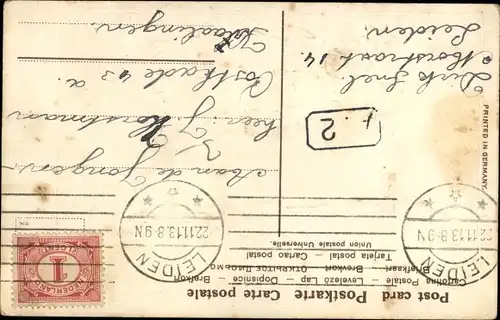 Post card Postkarte Carte postale
Cartolina Postale — Levelező Lap — Dopisnice — Brefkort
Briefkaart — Brevkort — ОТКРЫТОЕ ПИСЬМО
Tarjeta postal — Carte postal
Union postale Universelle.
LEIDEN
22.11.13.8-9N
LEIDEN
22.11.13.8-9N
NEDERLAND
1
CENT
PRINTED IN GERMANY.
2
Aan de Jongen
heer J.
Horstman
Postkade 43 a.
Dirk Snel.
Morstraat 14
Leiden